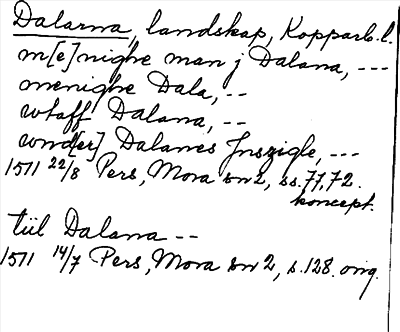 Dalarna, landskap, Kopparb.l.
m[e]nighe man j Dalana, ---
menighe Dala, --
wtaff Dalana, --
wnd[er] Dalanes Jnszigle, ---
1511 22/8 Pers, Mora sn 2, ss. 71, 72.
koncept.
tiil Dalana --
1511 14/7 Pers, Mora sn 2, s. 128. orig.